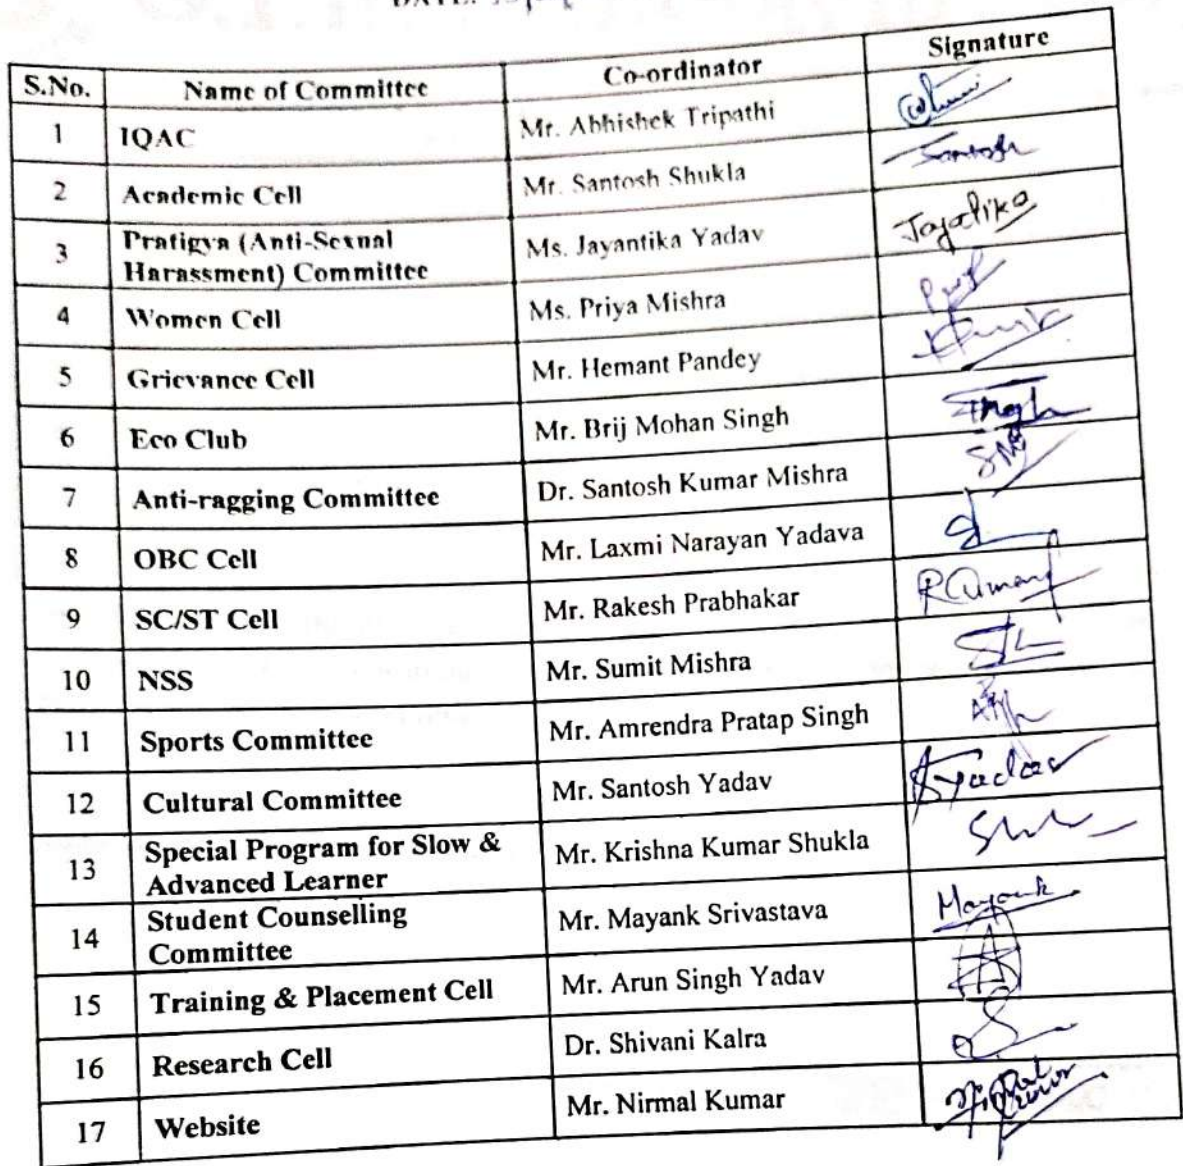 DATE:
S.No. Name of Committee Co-ordinator Signature
1 IQAC Mr. Abhishek Tripathi
2 Academic Cell Mr. Santosh Shukla Santosh
3 Pratigya (Anti-Sexual
Harassment) Committee Ms. Jayantika Yadav
4 Women Cell Ms. Priya Mishra
5 Grievance Cell Mr. Hemant Pandey
6 Eco Club Mr. Brij Mohan Singh
7 Anti-ragging Committee Dr. Santosh Kumar Mishra
8 OBC Cell Mr. Laxmi Narayan Yadava
9 SC/ST Cell Mr. Rakesh Prabhakar
10 NSS Mr. Sumit Mishra
11 Sports Committee Mr. Amrendra Pratap Singh
12 Cultural Committee Mr. Santosh Yadav SYadav
13 Special Program for Slow &
Advanced Learner Mr. Krishna Kumar Shukla
14 Student Counselling
Committee Mr. Mayank Srivastava Mayank
15 Training & Placement Cell Mr. Arun Singh Yadav
16 Research Cell Dr. Shivani Kalra
17 Website Mr. Nirmal Kumar